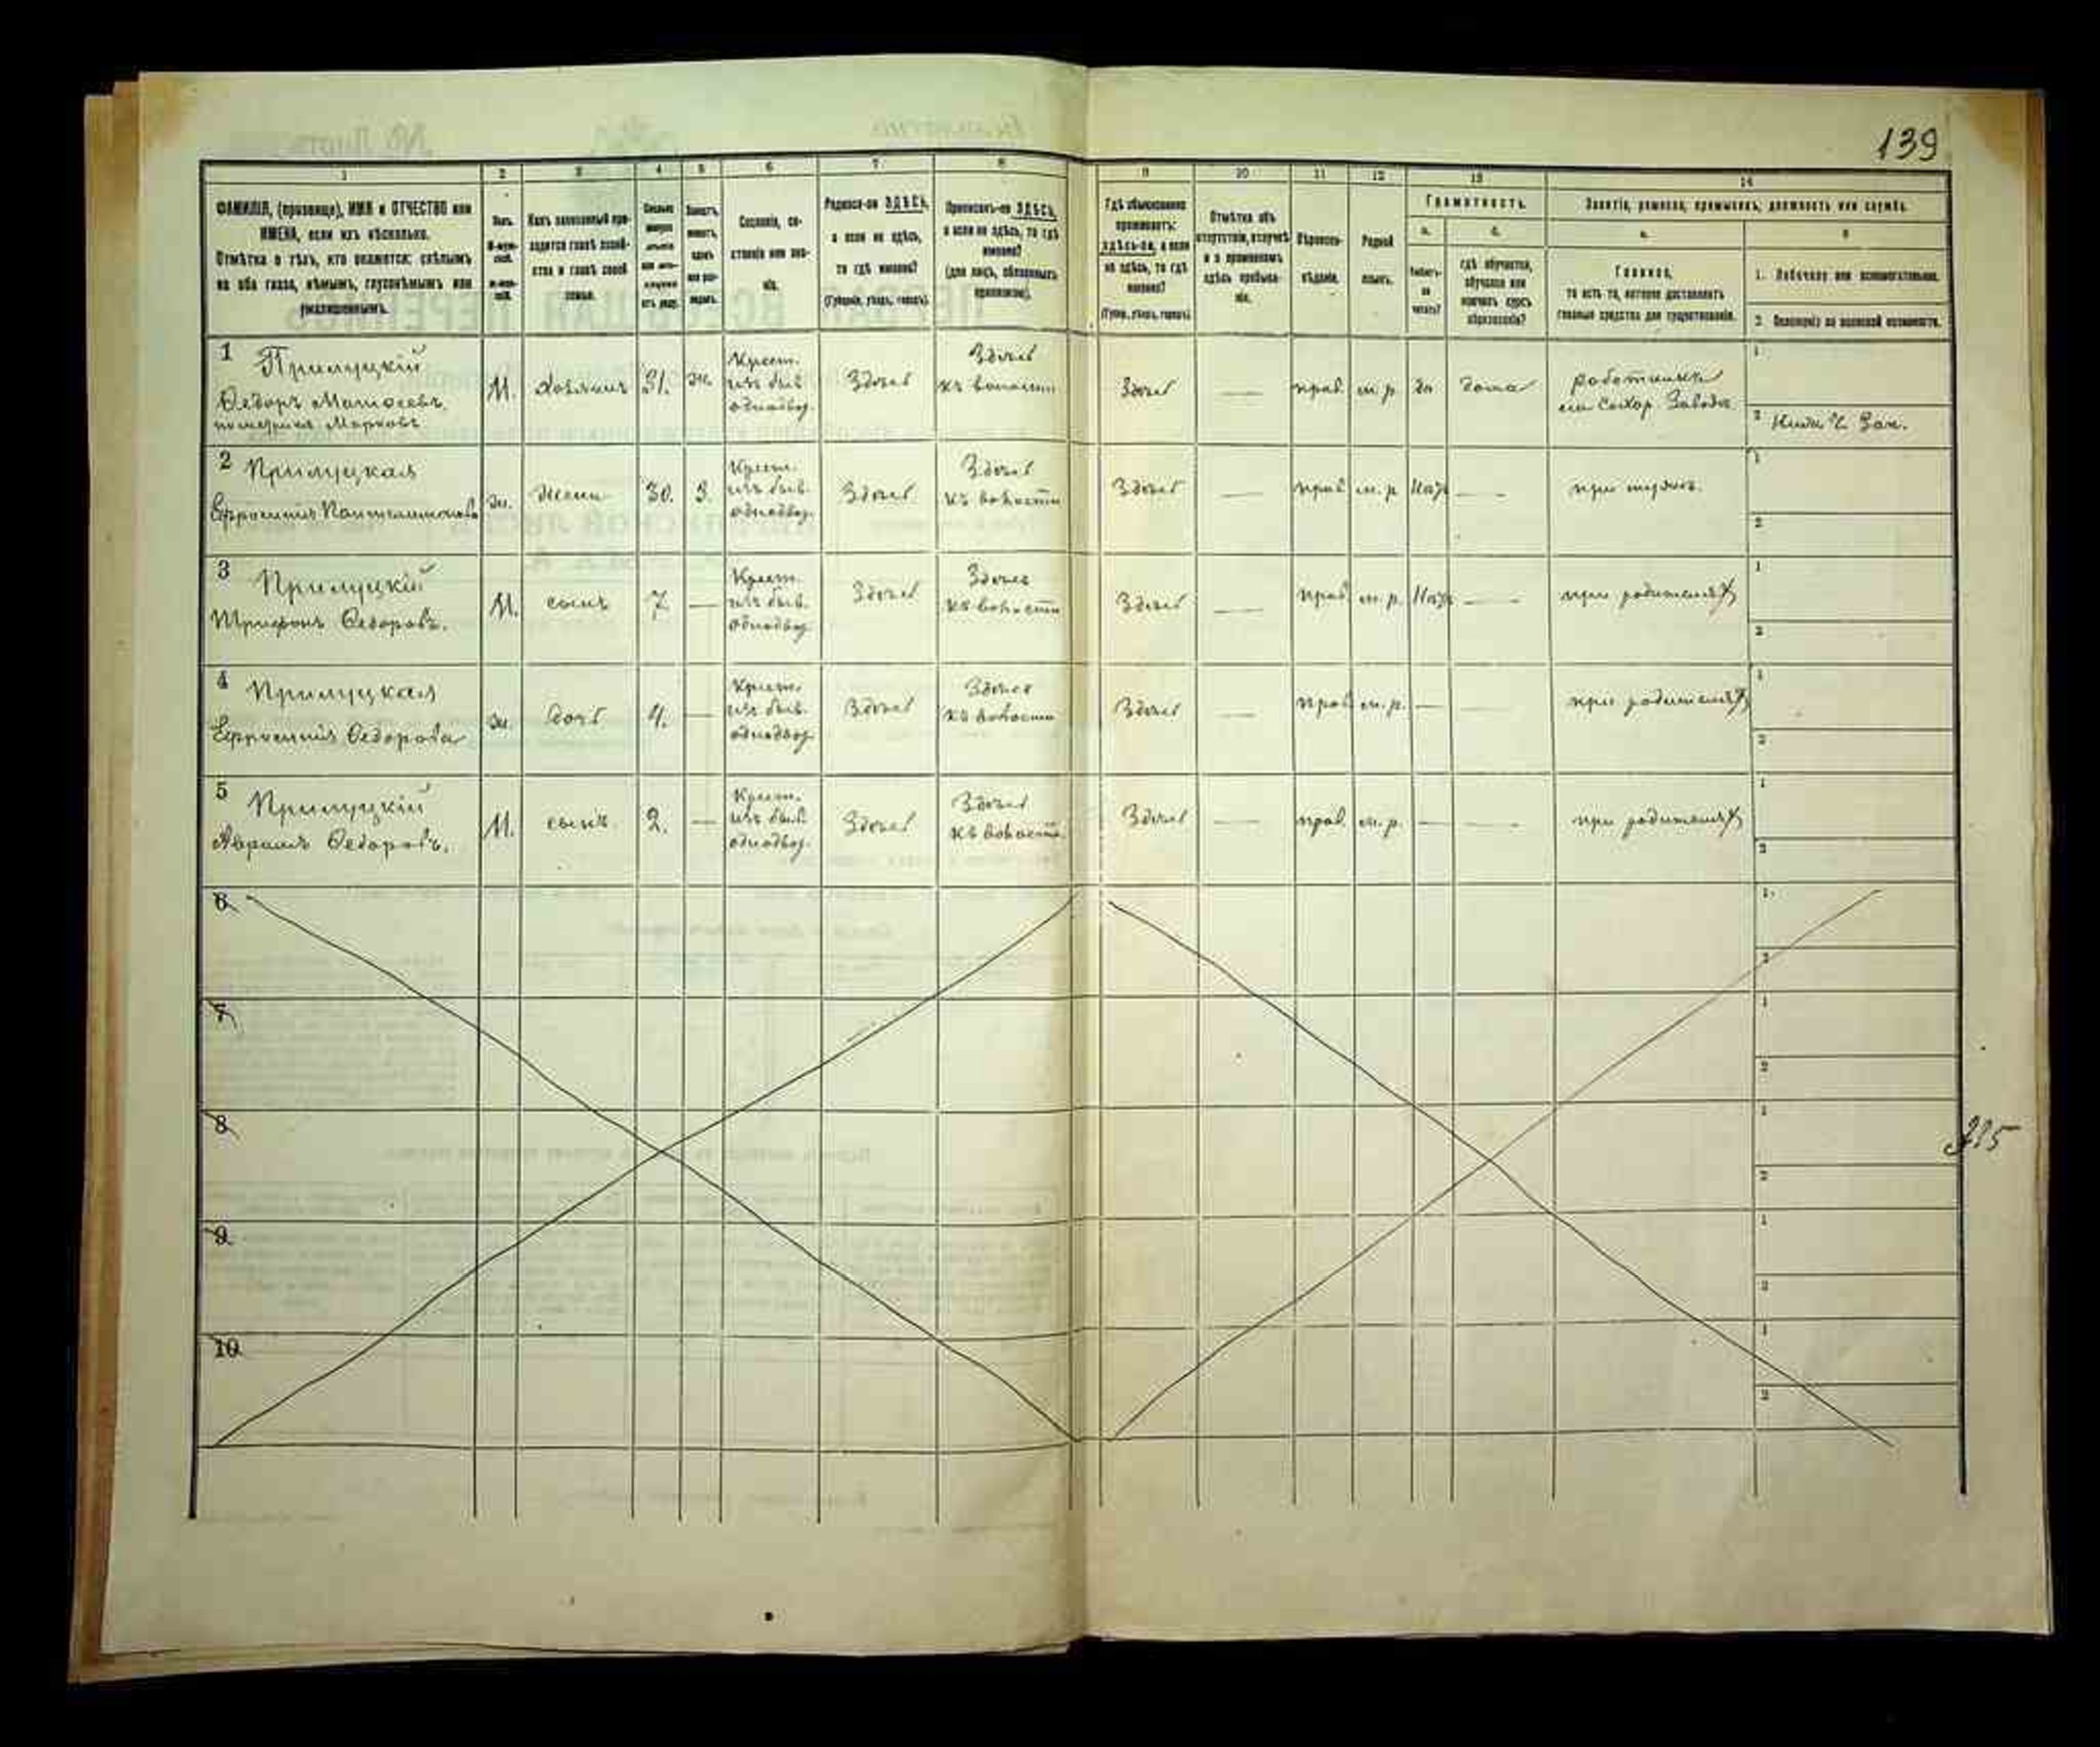 139
1 2 3 4 5 6 7 8 9 10 11 12 13 14
ФАМИЛІЯ, (прозвище), ИМЯ и ОТЧЕСТВО или
ИМЕНА, если ихъ нѣсколько.
Отмѣтка о тѣхъ, кто окажется: слѣпымъ
на оба глаза, нѣмымъ, глухонѣмымъ или
умалишеннымъ.
Полъ.
Какъ записанный при-
ходится главѣ хозяй-
ства и главѣ своей
семьи.
Сословіе, со-
стояніе или зва-
ніе.
Родился-ли ЗДѢСЬ,
а если не здѣсь,
то гдѣ именно?
(Губернія, уѣздъ, городъ).
Приписанъ-ли ЗДѢСЬ,
а если не здѣсь, то гдѣ
именно?
(для лицъ, обязанныхъ
припискою).
Гдѣ обыкновенно
проживаетъ:
здѣсь-ли, а если
не здѣсь, то гдѣ
именно?
(Губерн., уѣздъ, городъ)
Отмѣтка объ
отсутствіи, отлучкѣ
и о временномъ
здѣсь пребыва-
ніи.
Вѣроиспо-
вѣданіе.
Родной
языкъ.
Грамотность.
а. б.
Умѣетъ-
ли
читать?
гдѣ обучается,
обучался или
кончилъ курсъ
образованія?
Занятіе, ремесло, промыселъ, должность или служба.
а. б.
Главное,
то есть то, которое доставляетъ
главныя средства для существованія.
1. Побочное или вспомогательное.
2. Положеніе по воинской повинности.
1 Прилуцкій
Ѳедоръ
М. хозяинъ 31. ж. Крест. изъ быв. однодвор. Здѣсь Здѣсь къ волости Здѣсь — прав. м. р. да дома работникъ на Сахар. Заводѣ
1
2
2 Прилуцкая
Ефросинія Пантелимонова
ж. жена 30. З. Крест. изъ быв. однодвор. Здѣсь Здѣсь къ волости Здѣсь — прав. м. р. —— при мужѣ.
1
2
3 Прилуцкій
Трифонъ Ѳедоровъ.
М. сынъ 7. — Крест. изъ быв. однодвор. Здѣсь Здѣсь къ волости Здѣсь — прав. м. р. —— при родителях
1
2
4 Прилуцкая
Ефросинія Ѳедорова
ж. дочь 4. — Крест. изъ быв. однодвор. Здѣсь Здѣсь къ волости Здѣсь — прав. м. р. — —— при родителях
1
2
5 Прилуцкій
Абрамъ Ѳедоровъ.
М. сынъ. 2. — Крест. изъ быв. однодвор. Здѣсь Здѣсь къ волости Здѣсь — прав. м. р. — —— при родителях
1
2
6
1
2
7
1
2
8
1
2
9
1
2
10
1
2